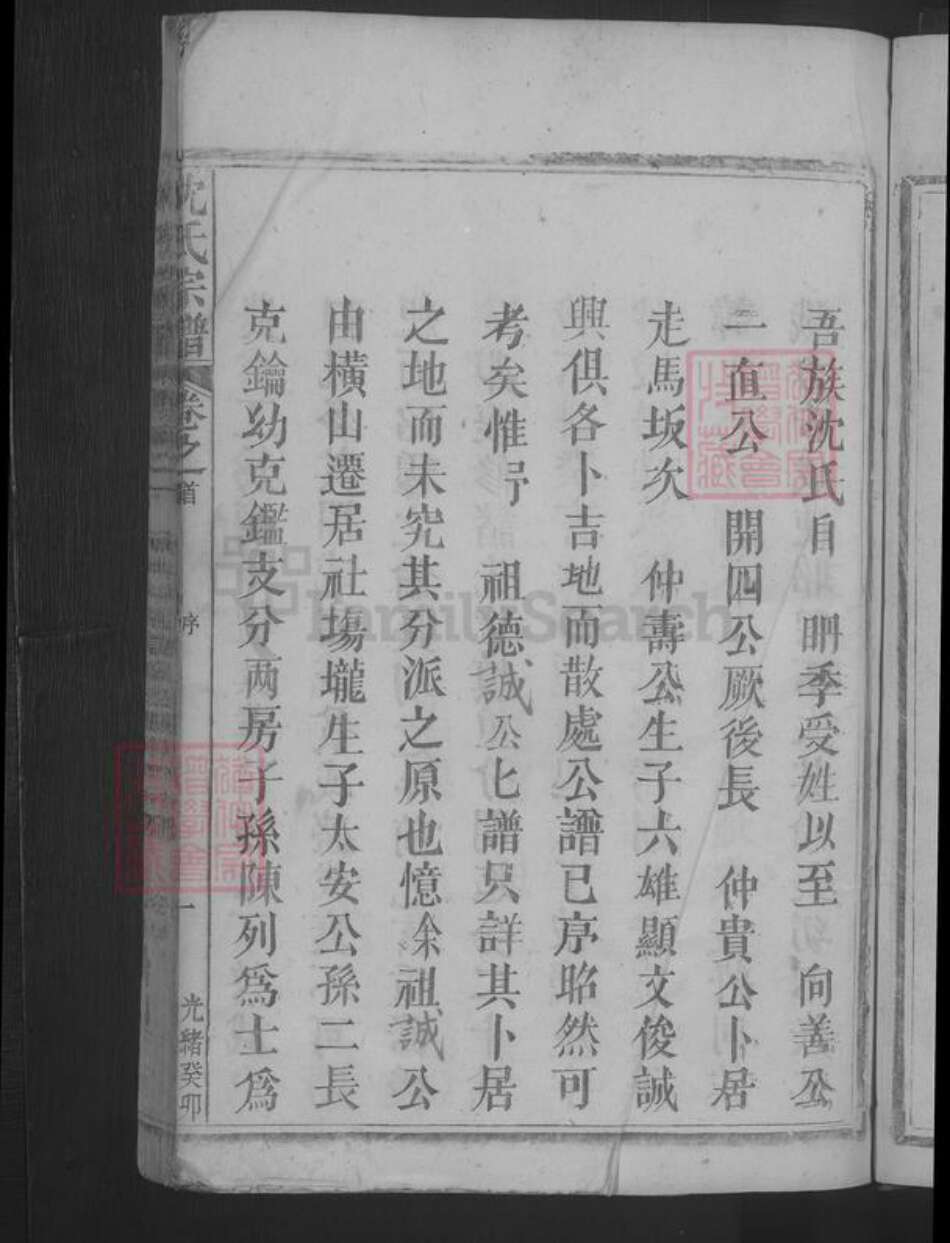 吾族沈氏自 耼季受姓以至 向善公
一直公 開四公厥後長 仲貴公卜居
走馬坂次 仲壽公生子六雄顯文俊誠
興俱各卜吉地而散處公譜已序昭然可
考矣惟予 祖德誠公匕譜只詳其卜居
之地而未究其分派之原也憶余祖誠公
由橫山遷居社塲壠生子太安公孫二長
克鑰幼克鑑支分两房子孫陳列爲士爲
沈氏宗譜 卷之一首 序 一 光緒癸卯
FamilySearch